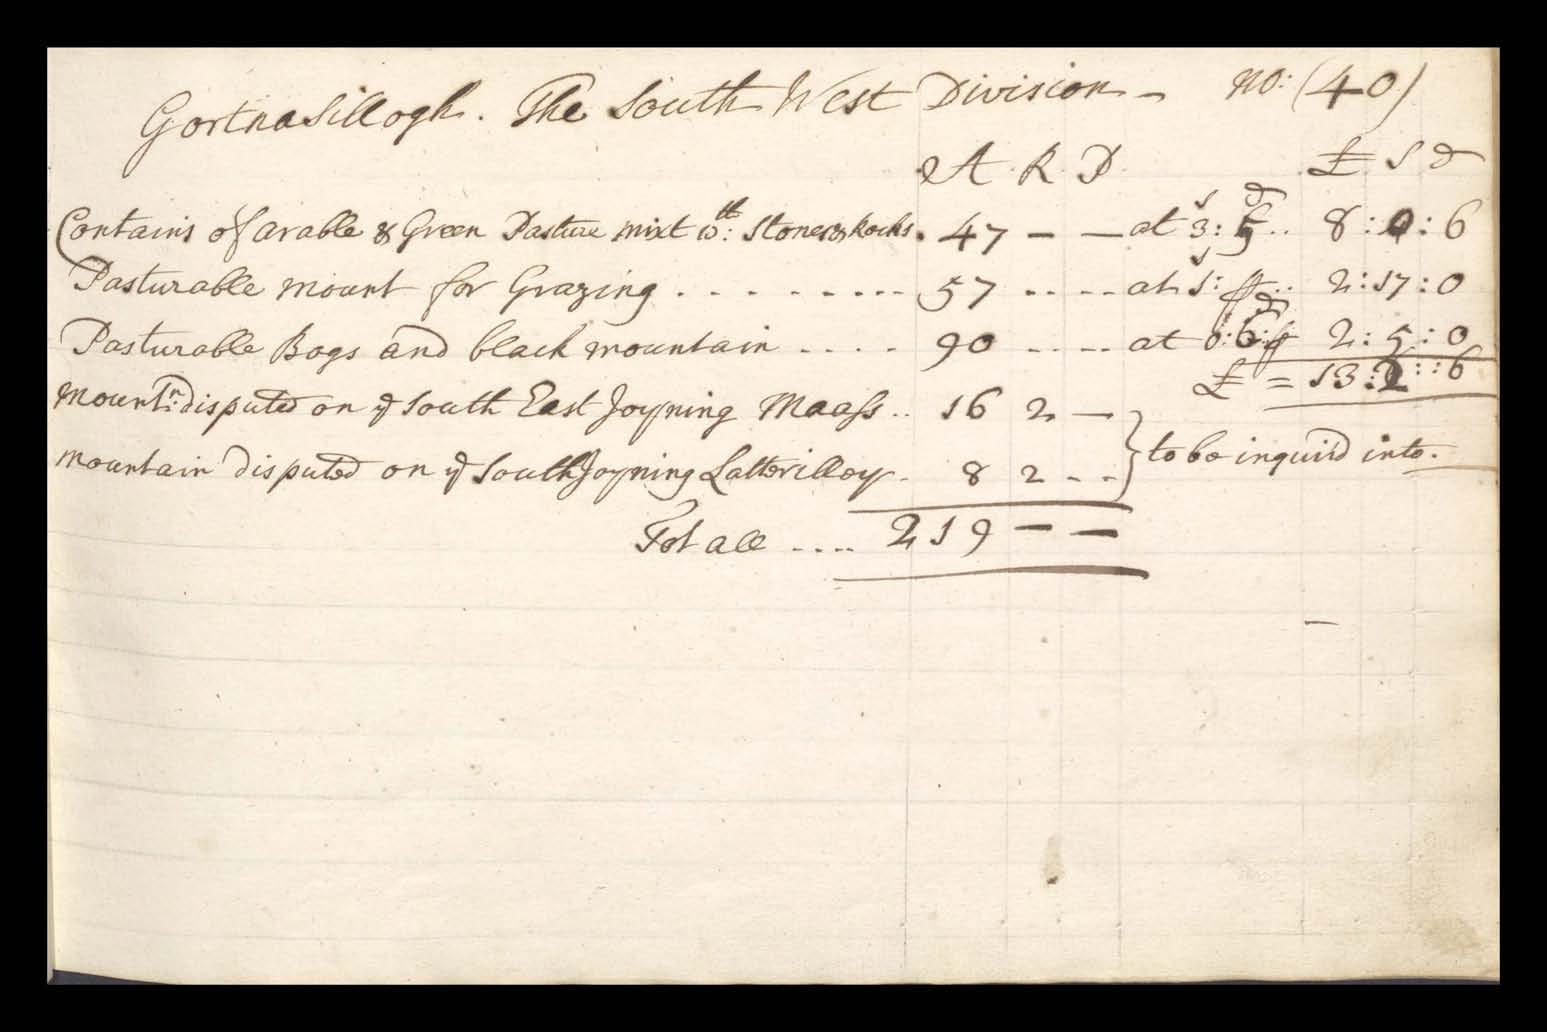 Gortnasillogh. The South West Division - No: (40)
A R P £ S D
Contains of arable & Green Pasture mixt wth: Stones & Rocks. 47 - - at 3s: 5d .. 8: 0: 6
Pasturable mount for Grazing . . . . . . . . . 57 - - - - at 1s: .. 2: 17: 0
Pasturable Bogs and black mountain . . . . 90 - - - - at 0: 6d: 2: 5: 0
£ = 13: 2 :: 6
Mountn: disputed on ye South East Joyning Maass .. 16 2 -
mountain disputed on ye South Joyning Latterilloy . 8 2 - - } to be inquir'd into.
Totall .... 219 - -